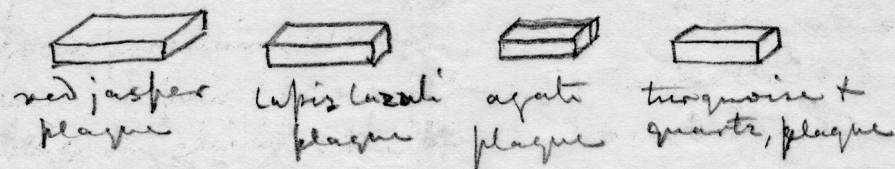 red jasper
plaque
lapis lazuli
plaque
agate
plaque
turquoise +
quartz, plaque